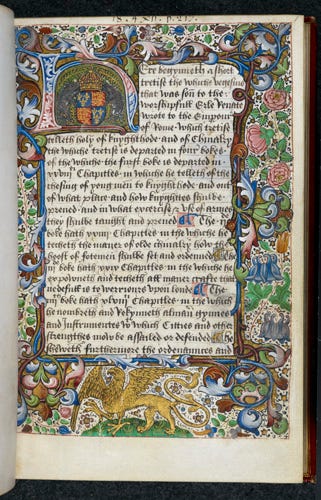 18. A. XII. p. 217.
Here begynneth a short
tretise the whiche Vegesius
that was son to the
worshipfull Erle Renate
wrote to the Emperour
of Rome which tretise
telleth holy of knyghthode and of Chivalry
the whiche tretise is departed in foure bokes
of the whiche the first boke is departed in
xxviij Chapitles in whiche he telleth of the
chesing of yong men to knyghthode and out
of what place and how knyghtes shulbe
preved and in what exercise &
armes
they shulbe taught and preued The ij
boke hath xxvj Chapitles in the whiche he
techeth the maner of olde chivalry how the
hoost of fotemen shulbe set and ordeined The
iij boke hath xxvj Chapitles in the whiche he
expowneth and techeth all maner crafte that
nedefull is to werriours vpon londe The
iiij boke hath xlvj Chapitles in the which
he nombreth and rehyrneth al maner gynnes
and Instrumentes by which Citties and other
strengthes mow be assailed or defended he
sheweth furthermore the ordenaunces and